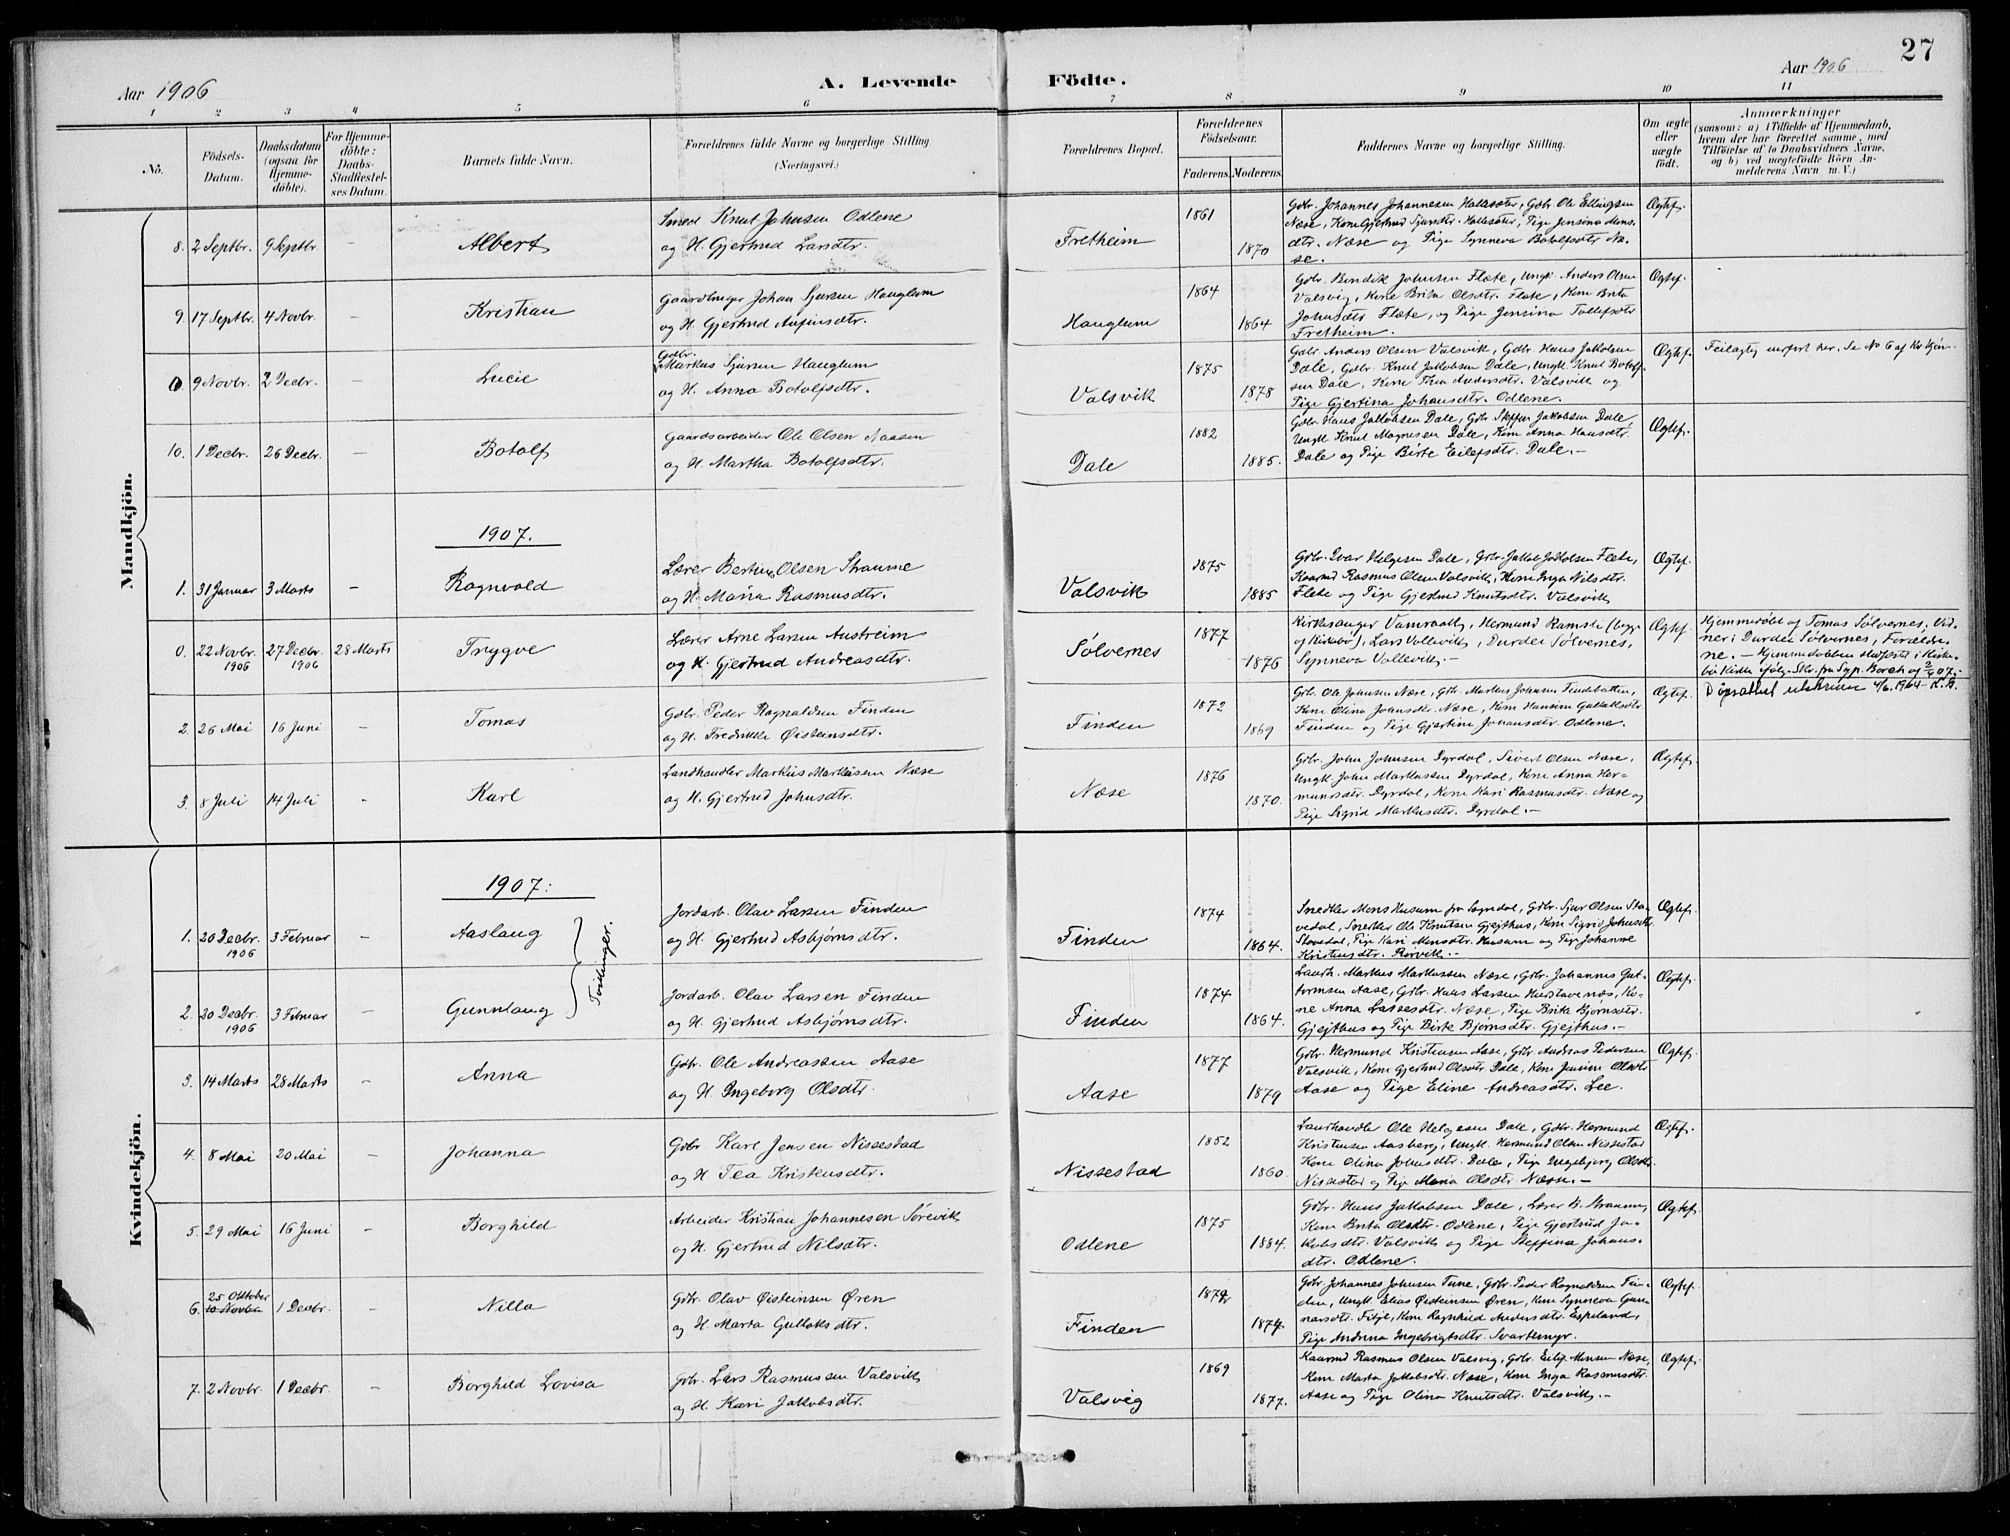 27
Aar 1906
A. Levende
Födte.
Aar 1906
1 2 3 4 5 6 7 8 9 10 11
No.
Födsels-
Datum.
Daabsdatum
(ogsaa for
Hjemme-
döbte).
For Hjemme-
döbte:
Daabs-
Stadfæstel-
ses Datum.
Barnets fulde Navn.
Forældrenes fulde Navne og borgerlige Stilling
(Næringsvei.)
Forældrenes Bopæl.
Forældrenes
Födselsaar.
Faderens. Moderens.
Faddernes Navne og borgerlige Stilling.
Om ægte
eller
uægte
födt.
Anmærkninger
(saasom: a) i Tilfælde af Hjemmedaab,
hvem der har forrettet samme, med
Tilföielse af to Daabsvidners Navne,
og b) ved uægtefödte Börn An-
melderens Navn m. V.)
Mandkjön.
8. 2 Septbr. 9 Septbr. - Albert
Smed Knut Johnsen Odlene
og H. Gjertrud Larsdtr.
Fretheim 1861 1870
Gdbr. Johannes Johannesen Hallesøter, Gdbr Ole Ellingsen
Næse, Kone Gjertrud Sjursdtr. Hallesøter, Pige Jensine Hans-
dtr. Næse og Pige Synneva Botolfsdtr Næ-
se.
Ægtef.
9. 17 Septbr. 4 Novbr. - Kristian
Gaardbruger Johan Sjursen Hauglum
og H. Gjertrud Anfinsdtr.
Hauglum 1864 1864
Gdbr. Bendik Johnsen Flæte, Ungk. Anders Olsen
Valsvig, Kone Brita Olsdtr. Flæte, Kone Brita
Johnsdtr Flæte, og Pige Jensina Tollefsdtr
Fretheim.
Ægtef.
0 9 Novbr. 2 Decbr. - Lucie
Gdbr.
Markus Sjursen Hauglum
og H. Anna Botolfsdtr.
Valsvik 1875 1878
Gdbr. Anders Olsen Valsvik, Gdbr. Hans Jakobsen
Dale, Gdbr. Knut Jakobsen Dale, Ungk. Knut Botolf-
sen Dale, Kone Thea Andersdtr. Valsvik og
Pige Gjertina Johansdtr. Odlene.
Ægtef.
Feilagtig indført her. Se No 6 af Kvkjøn-
10. 1 Decbr. 26 Decbr. - Botolf
Gaardsarbeider Ole Olsen Naasen
og H. Martha Botolfsdtr.
Dale 1882 1885.
Gdbr. Hans Jakobsen Dale, Gdbr. Steffen Jakobsen Dale
Ungk. Knut Magnesen Dale, Kone Anna Hansdtr.
Dale og Pige Birte Eilefsdtr. Dale.-
Ægtef.
1907.
1. 31 Januar 3 Marts - Ragnvald
Lærer Bertinus Olsen Straume
og H. Maria Rasmusdtr.
Valsvik 1875 1885
Gdbr. Ivar Helgesen Dale, Gdbr. Jakob Jakobsen Flæte,
Kaarmd Rasmus Olsen Valsvik, Kone Inga Nilsdtr.
Flæte og Pige Gjertrud Knutsdtr. Valsvik
Ægtef.
0. 22 Novbr. 1906 27 Decbr. 1906 28 Marts Trygve
Lærer Arne Larsen Austreim
og H. Gjertrud Andreasdtr.
Sølvernes 1877 1876
Kirkesanger Vamraak, Hermund Ramsli (begge
af Kirkebø), Lars Vallevik, Durdei Sølvernes,
Synneva Vallevik.-
Ægtef.
Hjemmedøbt og Tomas Sølvernes, Vid-
ner: Durdei Sølvernes, Forældre-
ne. - Hjemmedaaben stadfæstet i Kirke-
bø Kirke ifølge Skr. fra Sgp. Borch
Døpsattest utskriven 4/6 1964
2. 26 Mai 16 Juni - Tomas
Gdbr. Peder Ragnaldsen Finden
og H. Fredrikke Øisteinsdtr.
Finden 1872 1869
Gdbr. Ole Johnsen Næse, Gdbr. Markus Johnsen Findebotten,
Kone Olina Johnsdtr. Næse, Kone Hansine Gullaksdtr.
Finden og Pige Gjertine Johansdtr. Odlene.
Ægtef.
3. 8 Juli 14 Juli - Karl
Landhandler Markus Markusen Næse
og H. Gjertrud Johnsdtr.
Næse 1876 1870.
Gdbr. John Johnsen Dyrdal, Sivert Olsen Næse,
Ungk. John Markussen Dyrdal, Kone Anna Her-
mundsdtr. Dyrdal, Kone Kari Rasmusdtr. Næse og
Pige Sigrid Markusdtr. Dyrdal.-
Ægtef.
Kvindekjön.
1907:
Tvillinger.
1. 20 Decbr. 1906 3 Februar - Aaslaug
Jordarb. Olav Larsen Finden
og H. Gjertrud Asbjørnsdtr.
Finden 1874 1864.
Snedker Mons Husum fra Sogndal, Gdbr. Sjur Olsen Sta-
vedal, Snedker Ole Knutsen Gjejthus, Kone Sigrid Johnsdtr.
Stavedal, Pige Kari Monsdtr. Husum og Pige Johanne
Kristensdtr. Rørvik.-
Ægtef.
2. 20 Decbr. 1906 3 Februar - Gunnlaug
Jordarb. Olav Larsen Finden
og H. Gjertrud Asbjørnsdtr.
Finden 1874 1864.
Landh. Markus Markussen Næse, Gdbr. Johannes Gut-
tormsen Aase, Gdbr. Hans Larsen Hustavenæs, Ko-
ne Anna Lassesdtr. Næse, Pige Brita Bjørnsdtr.
Gjejthus og Pige Birte Bjørnsdtr. Gjejthus.-
Ægtef.
3. 14 Marts 28 Marts - Anna
Gdbr. Ole Andreassen Aase
og H. Ingeborg Olsdtr.
Aase 1877 1879
Gdbr. Hermund Kristensen Aase, Gdbr Andreas Pedersen
Valsvik, Kone Gjertrud Olsdtr. Dale, Kone Jensine Olsdtr
Aase og Pige Eline Andreasdtr. Lee.
Ægtef.
4. 8 Mai 20 Mai - Johanna
Gdbr Karl Jensen Nissestad
og H. Tea Kristensdtr.
Nissestad 1852 1860.
Landhandler Ole Helgesen Dale, Gdbr. Hermund
Kristensen Aasberg, Ungk. Hermund Olsen Nissestad
Kone Olina Johnsdtr. Dale, Pige Ingebjørg Olsdtr.
Nissestad og Pige Maria Olsdtr Næse.-
Ægtef.
5. 29 Mai 16 Juni - Borghild
Arbeider Kristian Johannesen Sørevik
og H. Gjertrud Nilsdtr.
Odlene 1875 1884.
Gdbr. Hans Jakobsen Dale, Lærer B. Straume,
Kone Brita Olsdtr. Odlene, Pige Gjertrud Ja-
kobsdtr. Valsvik og Pige Steffina Johans-
dtr. Odlene.
Ægtef.
6. 25 Oktober 10 Novbr 1 Decbr. - Nilla
Gdbr. Olav Øisteinsen Øren
og H. Marta Gullaksdtr.
Finden 1872 1874.
Gdbr. Johannes Johnsen Tune, Gdbr. Peder Ragnaldsen Fin-
den, Ungk. Elias Øisteinsen Øren, Kone Synneva Gun-
narsdtr. Fitje, Kone Ragnhild Andersdtr. Espeland,
Pige Andrina Ingebrigtsdtr. Svartemyr.
Ægtef.
7. 2 Novbr. 1 Decbr. - Borghild Lovisa
Gdbr. Lars Rasmussen Valsvik
og H. Kari Jakobsdtr.
Valsvig 1869 1877.
Kaarmd Rasmus Olsen Valsvig, Gdbr. Eilif Monsen Næse,
Kone Marta Jakobsdtr. Næse, Kone Inga Rasmusdtr.
Aase og Pige Olina Knutsdtr. Valsvik.-
Ægtef.